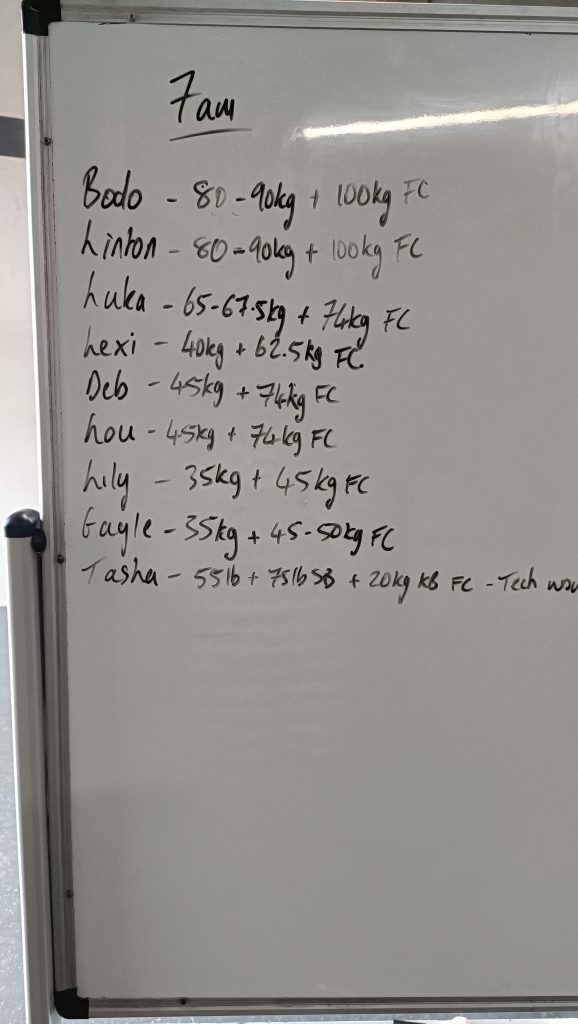 7am
Bodo - 80-90kg + 100kg FC
Linton - 80-90kg + 100kg FC
Luka - 65-67.5kg + 74kg FC
Lexi - 40kg + 62.5kg FC.
Deb - 45kg + 74kg FC
Lou - 45kg + 74kg FC
Lily - 35kg + 45kg FC
Gayle - 35kg + 45-50kg FC
Tasha - 55lb + 75lb SB + 20kg KB FC - Tech